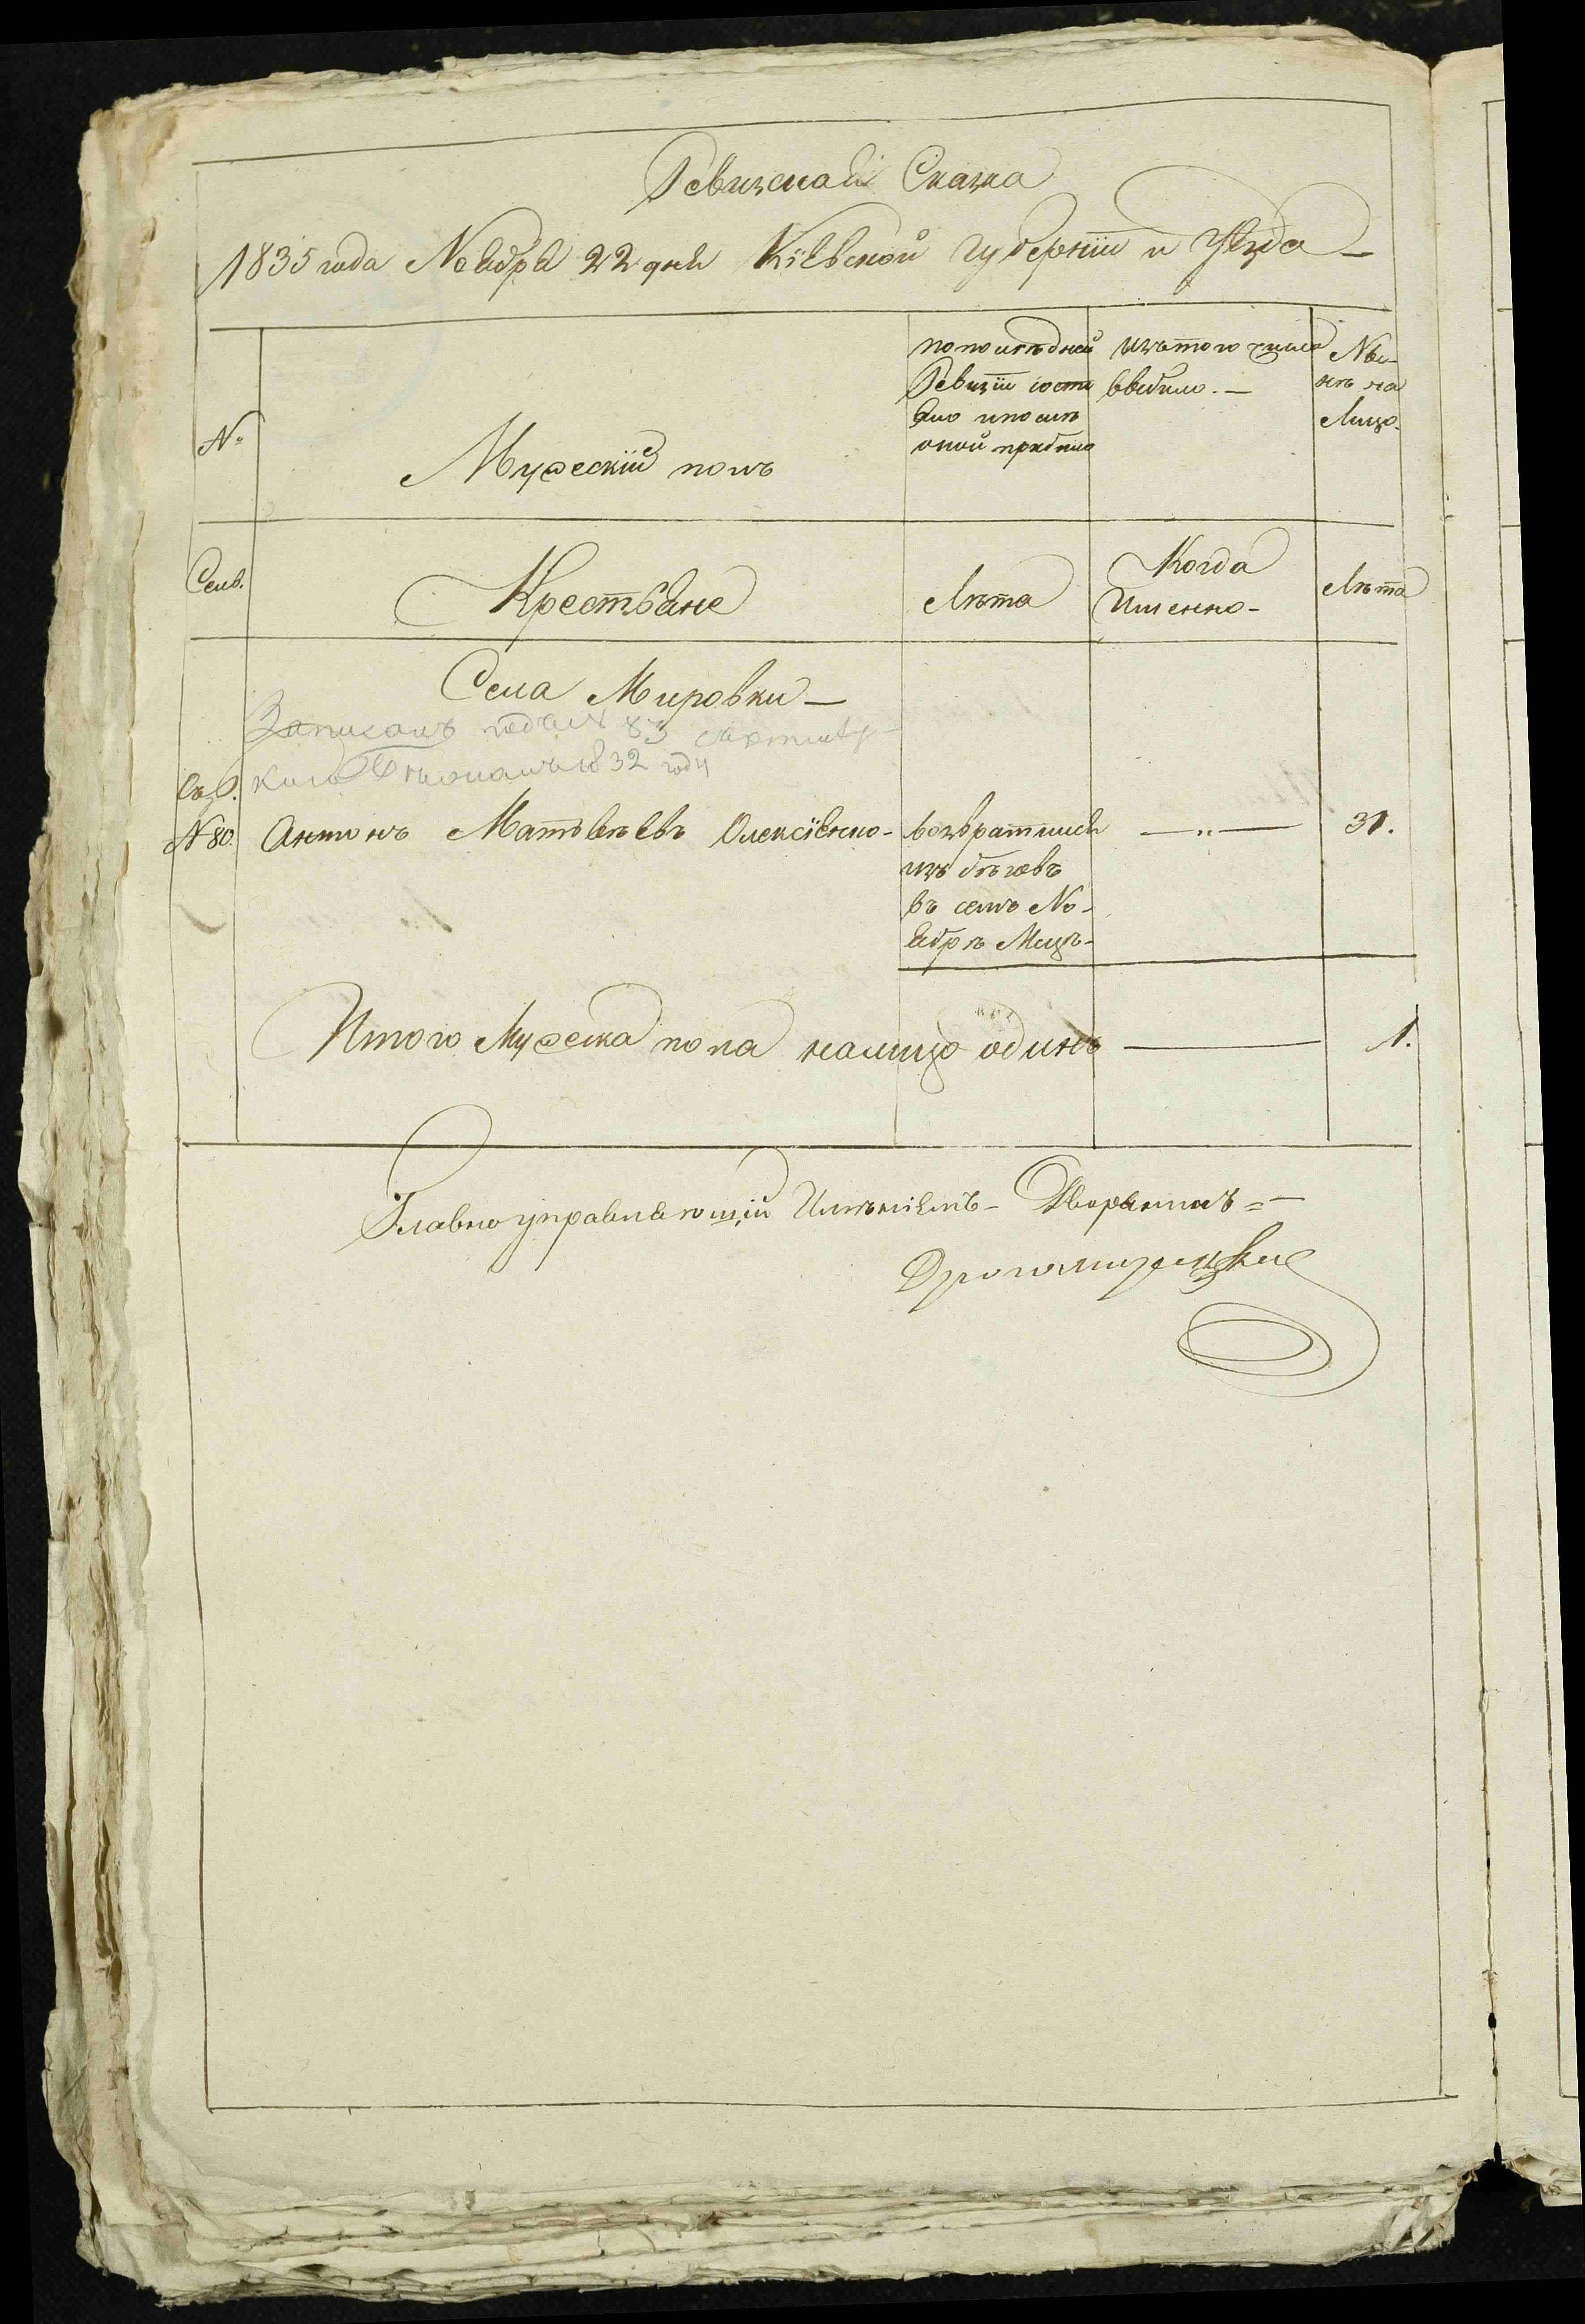 Ревизская Сказка
1835 года Ноября 22 дня Кіевской губерніи и Уѣзда
№
Мужескій полъ
по последней
Ревизіи состо
яло и после
оной прибыло
изъ того числа
выбыло. —
Ны-
нѣ на
Лицо.
Сем.
Крестьяне
Лѣта
Когда
Именно -
Лѣта
Села Мировки —
Записанъ подъ № 83
32 году
№ 80. Антонъ Матвѣевъ Олексіенко - возвратился — " — 31.
изъ бѣговъ
въ семъ Но-
ябрѣ Мцѣ -
Итого мужеска пола налицо одинъ — 1.
Главноуправляющій Имѣніемъ - Дворянинъ = —